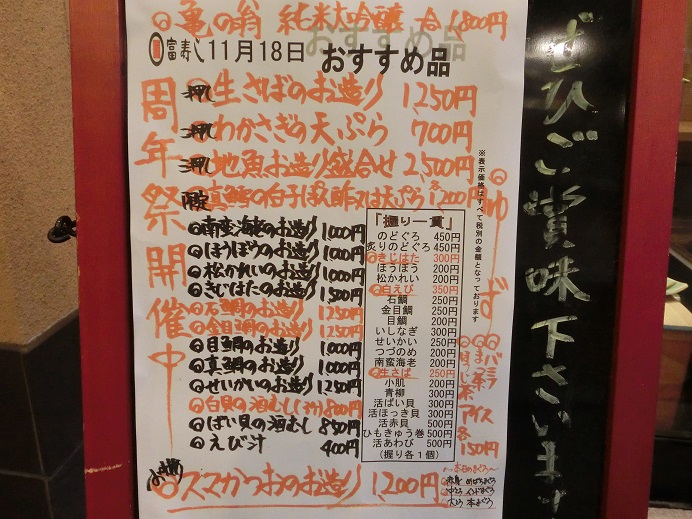 亀の翁 純米大吟醸 一合 1,800円
富寿し 11月18日 おすすめ品
周年祭開催中
生さばのお造り 1,250円
わかさぎの天ぷら 700円
地魚お造り盛合せ 2,500円
限定 真鱈の白子ぽん酢又は天ぷら 各1,200円
南蛮海老のお造り 1,000円
ほうぼうのお造り 1,000円
松かれいのお造り 1,000円
きじはたのお造り 1,500円
石鯛のお造り 1,250円
金目鯛のお造り 1,250円
目鯛のお造り 1,000円
真鯛のお造り 1,000円
せいかいのお造り 1,250円
白貝の酒むし 800円
ばい貝の酒むし 850円
えび汁 400円
スマかつおのお造り 1,200円
「握り一貫」
のどぐろ 450円
炙りのどぐろ 450円
きじはた 300円
ほうぼう 200円
松かれい 200円
白えび 350円
石鯛 250円
金目鯛 250円
目鯛 200円
いしなぎ 300円
せいかい 250円
つづのめ 200円
南蛮海老 200円
生さば 250円
小肌 200円
青柳 300円
活ばい貝 300円
活ほっき貝 300円
活赤貝 500円
ひもきゅう巻 500円
活あわび 500円
(握り各1個)
※表示価格はすべて税別の金額となっております
ゆず
バニラ
ほうじ茶
アイス
各150円
本日のまぐろ
ぜひご賞味下さいませ